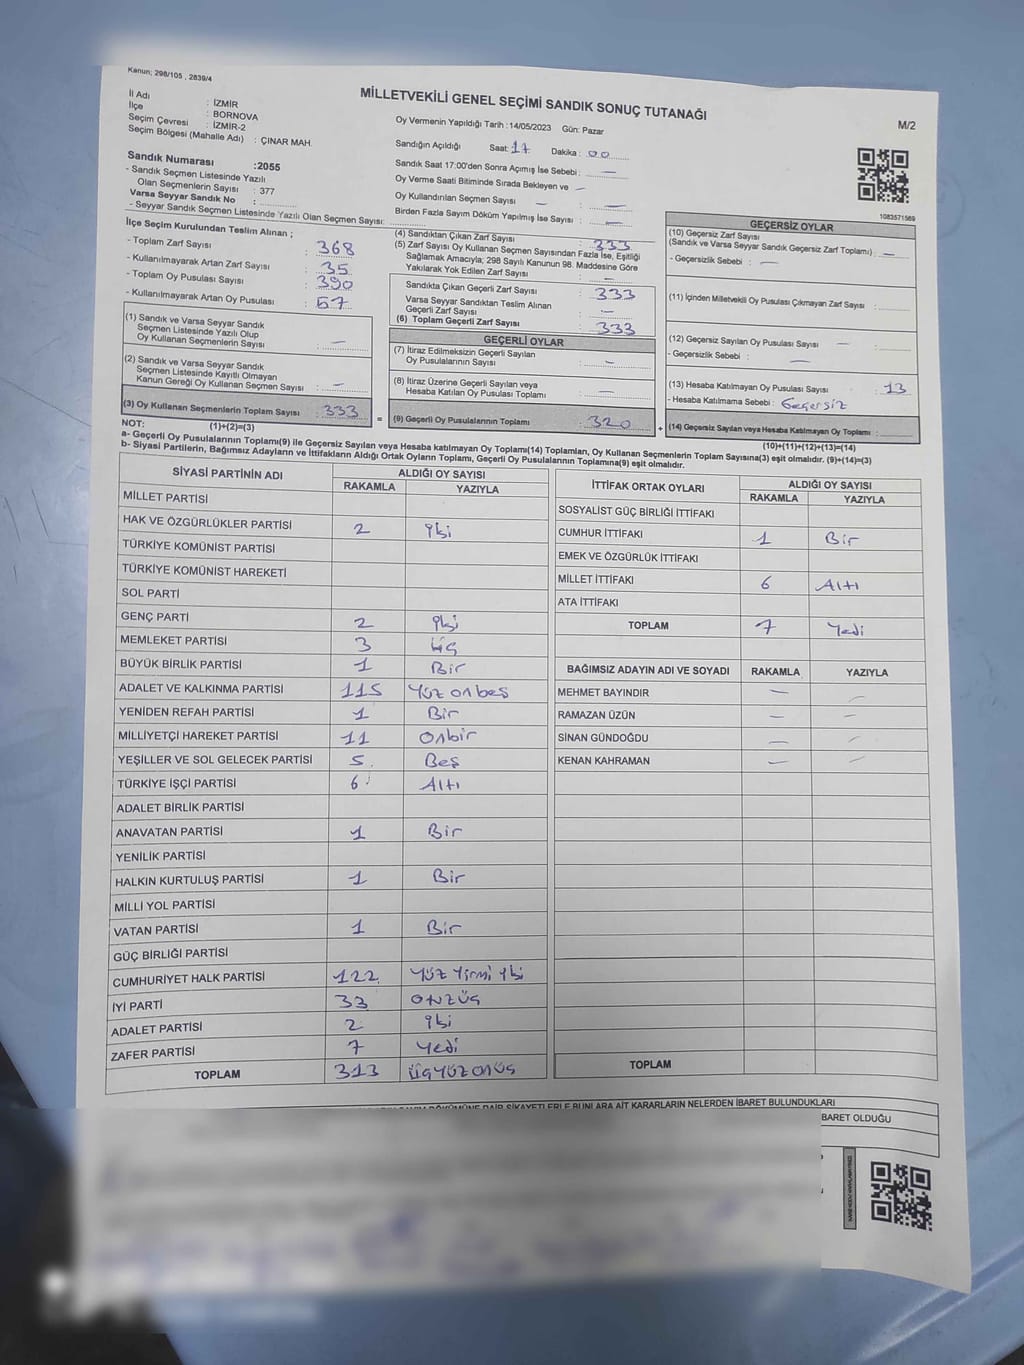 Kanun; 298/105 , 2839/4
MİLLETVEKİLİ GENEL SEÇİMİ SANDIK SONUÇ TUTANAĞI
M/2
İl Adı : İZMİR
İlçe : BORNOVA
Seçim Çevresi : İZMİR-2
Seçim Bölgesi (Mahalle Adı) : ÇINAR MAH.
Sandık Numarası :2055
- Sandık Seçmen Listesinde Yazılı
Olan Seçmenlerin Sayısı : 377
Varsa Seyyar Sandık No :
- Seyyar Sandık Seçmen Listesinde Yazılı Olan Seçmen Sayısı:
Oy Vermenin Yapıldığı Tarih : 14/05/2023 Gün: Pazar
Sandığın Açıldığı Saat: 17 Dakika : 00
Sandık Saat 17:00'den Sonra Açımış İse Sebebi : —
Oy Verme Saati Bitiminde Sırada Bekleyen ve —
Oy Kullandırılan Seçmen Sayısı — : —
Birden Fazla Sayım Döküm Yapılmış İse Sayısı : —
1083571569
İlçe Seçim Kurulundan Teslim Alınan ;
- Toplam Zarf Sayısı : 368
- Kullanılmayarak Artan Zarf Sayısı : 35
- Toplam Oy Pusulası Sayısı : 390
- Kullanılmayarak Artan Oy Pusulası : 57
(1) Sandık ve Varsa Seyyar Sandık
Seçmen Listesinde Yazılı Olup
Oy Kullanan Seçmenlerin Sayısı : —
(2) Sandık ve Varsa Seyyar Sandık
Seçmen Listesinde Kayıtlı Olmayan
Kanun Gereği Oy Kullanan Seçmen Sayısı : —
(3) Oy Kullanan Seçmenlerin Toplam Sayısı : 333
(1)+(2)=(3)
(4) Sandıktan Çıkan Zarf Sayısı : 333
(5) Zarf Sayısı Oy Kullanan Seçmen Sayısından Fazla İse, Eşitliği
Sağlamak Amacıyla; 298 Sayılı Kanunun 98. Maddesine Göre
Yakılarak Yok Edilen Zarf Sayısı : —
Sandıkta Çıkan Geçerli Zarf Sayısı : 333
Varsa Seyyar Sandıktan Teslim Alınan
Geçerli Zarf Sayısı : —
(6) Toplam Geçerli Zarf Sayısı : 333
GEÇERLİ OYLAR
(7) İtiraz Edilmeksizin Geçerli Sayılan
Oy Pusulalarının Sayısı : —
(8) İtiraz Üzerine Geçerli Sayılan veya
Hesaba Katılan Oy Pusulası Toplamı : —
= (9) Geçerli Oy Pusulalarının Toplamı : 320
GEÇERSİZ OYLAR
(10) Geçersiz Zarf Sayısı
(Sandık ve Varsa Seyyar Sandık Geçersiz Zarf Toplamı) : —
- Geçersizlik Sebebi : —
(11) İçinden Milletvekili Oy Pusulası Çıkmayan Zarf Sayısı :
(12) Geçersiz Sayılan Oy Pusulası Sayısı —
- Geçersizlik Sebebi : —
(13) Hesaba Katılmayan Oy Pusulası Sayısı : 13
- Hesaba Katılmama Sebebi : Geçersiz
+ (14) Geçersiz Sayılan veya Hesaba Katılmayan Oy Toplamı :
(10)+(11)+(12)+(13)=(14)
NOT:
a- Geçerli Oy Pusulalarının Toplamı(9) ile Geçersiz Sayılan veya Hesaba katılmayan Oy Toplamı(14) Toplamları, Oy Kullanan Seçmenlerin Toplam Sayısına(3) eşit olmalıdır. (9)+(14)=(3)
b- Siyasi Partilerin, Bağımsız Adayların ve İttifakların Aldığı Ortak Oyların Toplamı, Geçerli Oy Pusulalarının Toplamına(9) eşit olmalıdır.
SİYASİ PARTİNİN ADI ALDIĞI OY SAYISI
RAKAMLA YAZIYLA
MİLLET PARTİSİ
HAK VE ÖZGÜRLÜKLER PARTİSİ 2 iki
TÜRKİYE KOMÜNİST PARTİSİ
TÜRKİYE KOMÜNİST HAREKETİ
SOL PARTİ
GENÇ PARTİ 2 iki
MEMLEKET PARTİSİ 3 üç
BÜYÜK BİRLİK PARTİSİ 1 Bir
ADALET VE KALKINMA PARTİSİ 115 Yüz onbeş
YENİDEN REFAH PARTİSİ 1 Bir
MİLLİYETÇİ HAREKET PARTİSİ 11 Onbir
YEŞİLLER VE SOL GELECEK PARTİSİ 5 Beş
TÜRKİYE İŞÇİ PARTİSİ 6 Altı
ADALET BİRLİK PARTİSİ
ANAVATAN PARTİSİ 1 Bir
YENİLİK PARTİSİ
HALKIN KURTULUŞ PARTİSİ 1 Bir
MİLLİ YOL PARTİSİ
VATAN PARTİSİ 1 Bir
GÜÇ BİRLİĞİ PARTİSİ
CUMHURİYET HALK PARTİSİ 122 Yüz Yirmi iki
İYİ PARTİ 33 OTUZÜÇ
ADALET PARTİSİ 2 iki
ZAFER PARTİSİ 7 Yedi
TOPLAM 313 ÜÇYÜZONÜÇ
İTTİFAK ORTAK OYLARI ALDIĞI OY SAYISI
RAKAMLA YAZIYLA
SOSYALİST GÜÇ BİRLİĞİ İTTİFAKI
CUMHUR İTTİFAKI 1 Bir
EMEK VE ÖZGÜRLÜK İTTİFAKI
MİLLET İTTİFAKI 6 Altı
ATA İTTİFAKI
TOPLAM 7 Yedi
BAĞIMSIZ ADAYIN ADI VE SOYADI RAKAMLA YAZIYLA
MEHMET BAYINDIR — —
RAMAZAN ÜZÜN — —
SİNAN GÜNDOĞDU — —
KENAN KAHRAMAN — —
TOPLAM
DÖKÜMÜNE DAİR ŞİKAYETLERLE BUNLARA AİT KARARLARIN NELERDEN İBARET BULUNDUKLARI
BARET OLDUĞU